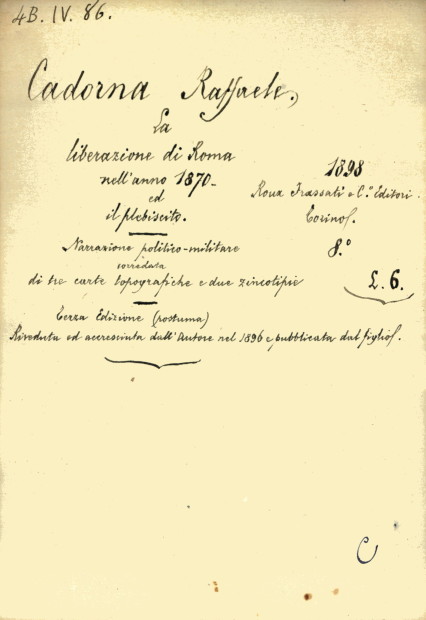 4B. IV. 86.
Cadorna Raffaele,
La
liberazione di Roma
nell'anno 1870-
ed
il plebiscito.
1898
Roux Frassati e C.º Editori.
Torino.
8.º
£. 6.
Narrazione politico-militare
corredata
di tre carte topografiche e due zincotipie
Terza Edizione (postuma)
Riveduta ed accresciuta dall'Autore nel 1896 e pubblicata dal figlio.
C